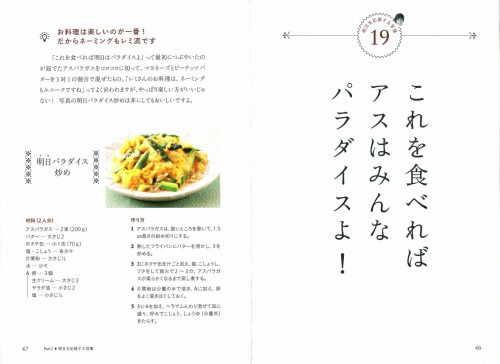 明日を応援する言葉
19
これを食べれば
アスはみんな
パラダイスよ！
46
お料理は楽しいのが一番！
だからネーミングもレミ流です
「これを食べれば明日はパラダイスよ」って最初につぶやいたの
が茹でたアスパラガスをコロコロに切って、マヨネーズとピーナッツバ
ターを3対1の割合で混ぜたもの。「レミさんのお料理は、ネーミング
もユニークですね」ってよく言われますが、やっぱり楽しい方がいいじゃ
ない！　写真の明日パラダイス炒めは丼にしてもおいしいですよ。
明日パラダイス
炒め
材料（2人分）
アスパラガス … 2束（200g）
バター … 大さじ2
ホタテ缶 … 小1缶（70g）
塩・こしょう … 各少々
片栗粉 … 大さじ½
水 … 少々
A 卵 … 3個
生クリーム … 大さじ3
サラダ油 … 小さじ2
塩 … 小さじ
作り方
1 アスパラガスは、固いところを除いて、1.5
cm長さの斜め切りにする。
2 熱したフライパンにバターを溶かし、1を
炒める。
3 2にホタテ缶を汁ごと加え、塩、こしょうし、
フタをして弱火で2～3分、アスパラガ
スが柔らかくなるまで蒸し煮する。
4 片栗粉は少量の水で溶き、Aに加え、卵
をよく溶きほぐしておく。
5 3に4を加え、ヘラでふんわり混ぜて皿に
盛り、好みでこしょう、しょうゆ（分量外）
をたらす。
47
Part2 ▶ 明日を応援する言葉